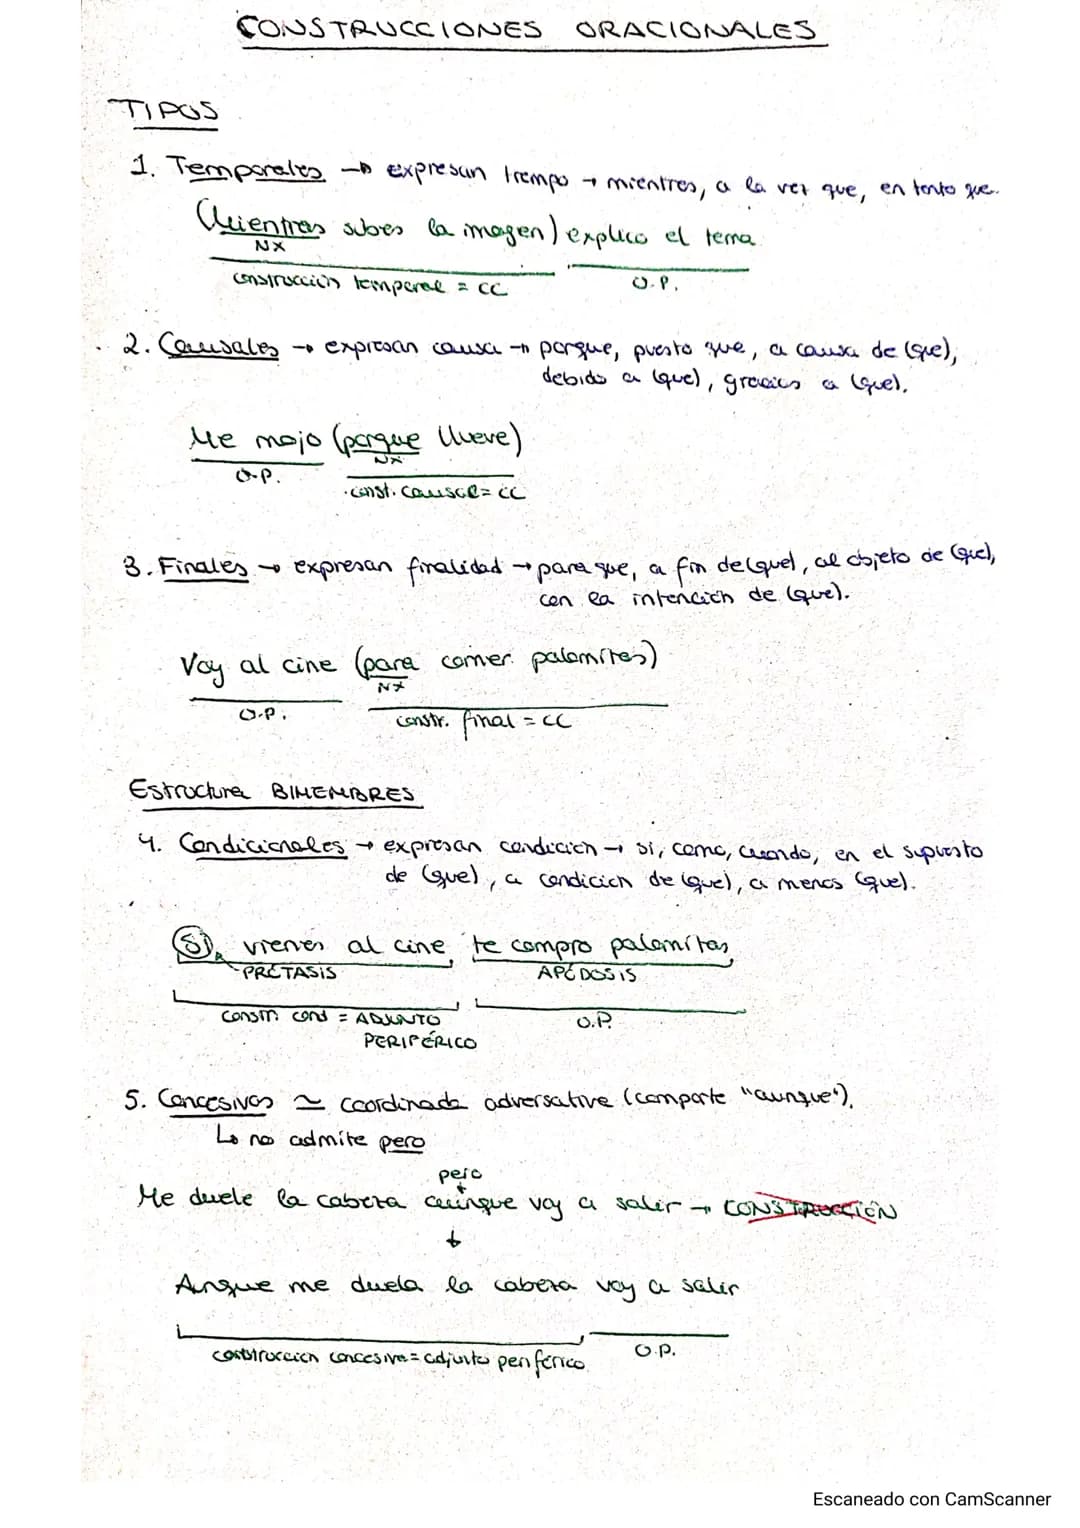 CONSTRUCCIONES ORACIONALES
TIPOS
1. Temporales → expresan tiempo → mientras, a la vez que, en tanto que.
(Mientras subes la imagen) explico el tema
NX
construcción temporal = CC O.P.
2. Causales → expresan causa → porque, puesto que, a causa de (que),
debido a (que), gracias a (que).
Me mojo (porque llueve)
NX
O.P.
const. causal = CC
3. Finales → expresan finalidad → para que, a fin de (que), al objeto de (que),
con la intención de (que).
Voy al cine (para comer palomitas)
NX
O.P. constr. final = CC
Estructura BIMEMBRES
4. Condicionales → expresan condición → si, como, cuando, en el supuesto
de (que), a condición de (que), a menos (que).
Si vienes al cine, te compro palomitas,
PRÓTASIS APÓDOSIS
Constr. cond = ADJUNTO O.P.
PERIFÉRICO
5. Concesivas ≃ coordinada adversativa (comparte "aunque"),
↳ no admite pero
pero
↑
Me duele la cabeza aunque voy a salir → CONSTRUCCIÓN
↓
Aunque me duela la cabeza voy a salir
construcción concesiva = adjunto periférico O.P.
Escaneado con CamScanner